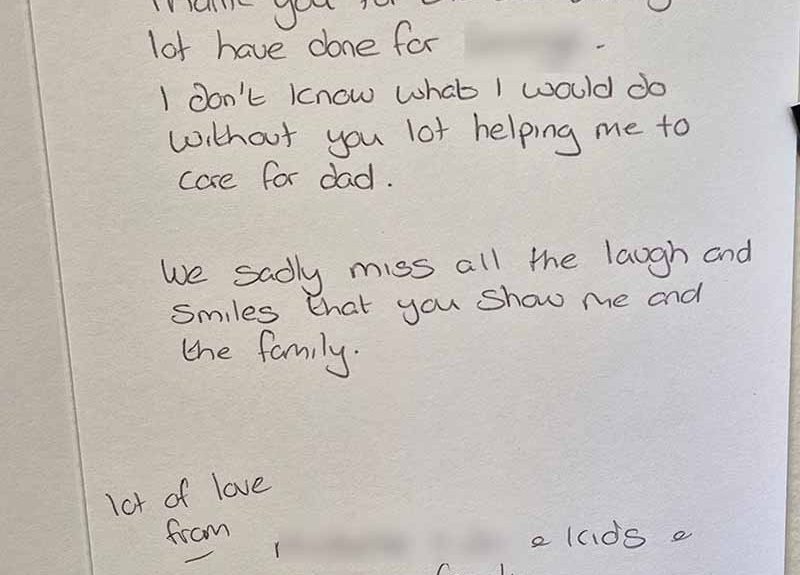 Thank you for
lot have done for
I don't know whats I would do
without you lot helping me to
care for dad.
We sadly miss all the laugh and
smiles that you show me and
the family.
lot of love
from
e kids e